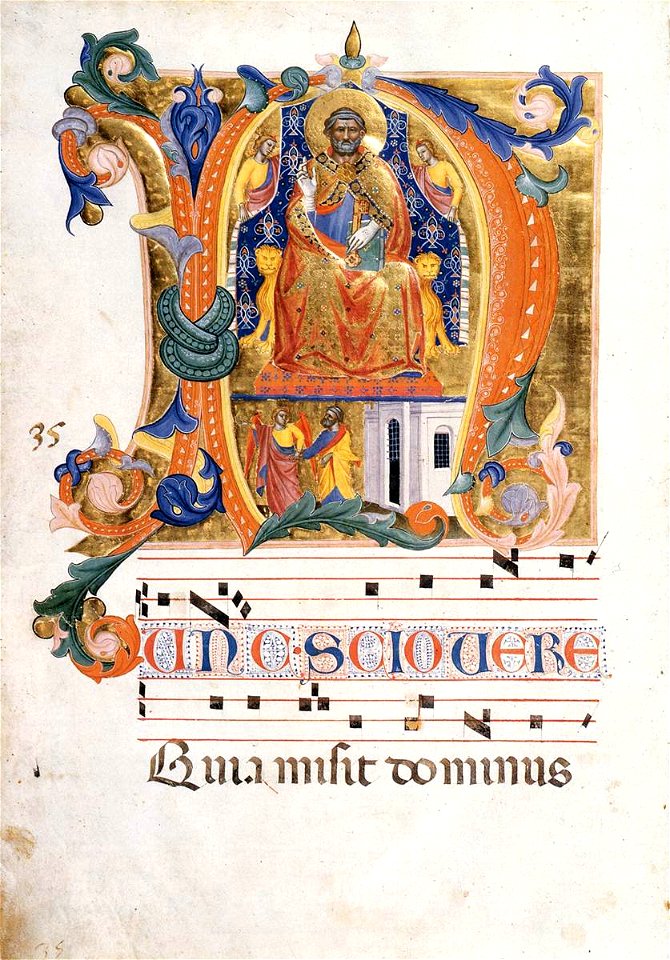 35
NUNC·SCIO UERE
Quia misit dominus
35